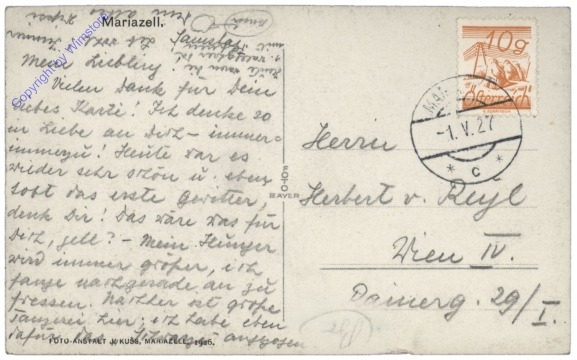 Mariazell.
Samstag
Mein Liebling!
Vielen Dank für Dein
liebes Karti! Ich denke so
in Liebe an Dich - immer-
immerzu! Heute war es
wieder sehr schön u. eben
tobt das erste Gewitter,
denk Dir! Das wäre was für
Dich, gell? - Mein Hunger
wird immer größer, ich
fange nachgerade an zu
fressen. Nachher ist große
Tanzerei hier; ich habe eben
dafür das
FOTO-ANSTALT J. KUSS, MARIAZELL, 1926.
FOTO
BAYER
10g
Österreich
MARIAZELL
-1.V.27
* c *
Herrn
Herbert v. Reyl
Wien IV.
Painerg. 29/I.
Copyright by Winistoerfer